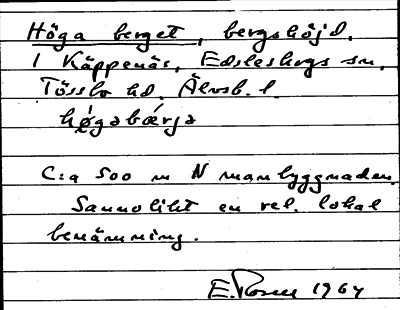 Höga berget, bergshöjd.
1 Käppenäs, Edsleskogs sn,
Tössbo hd. Älvsb. l.
hǿgabǽrja
C:a 500 m N manbyggnaden.
Sannolikt en rel. lokal
benämning.
E. Rosell 1964